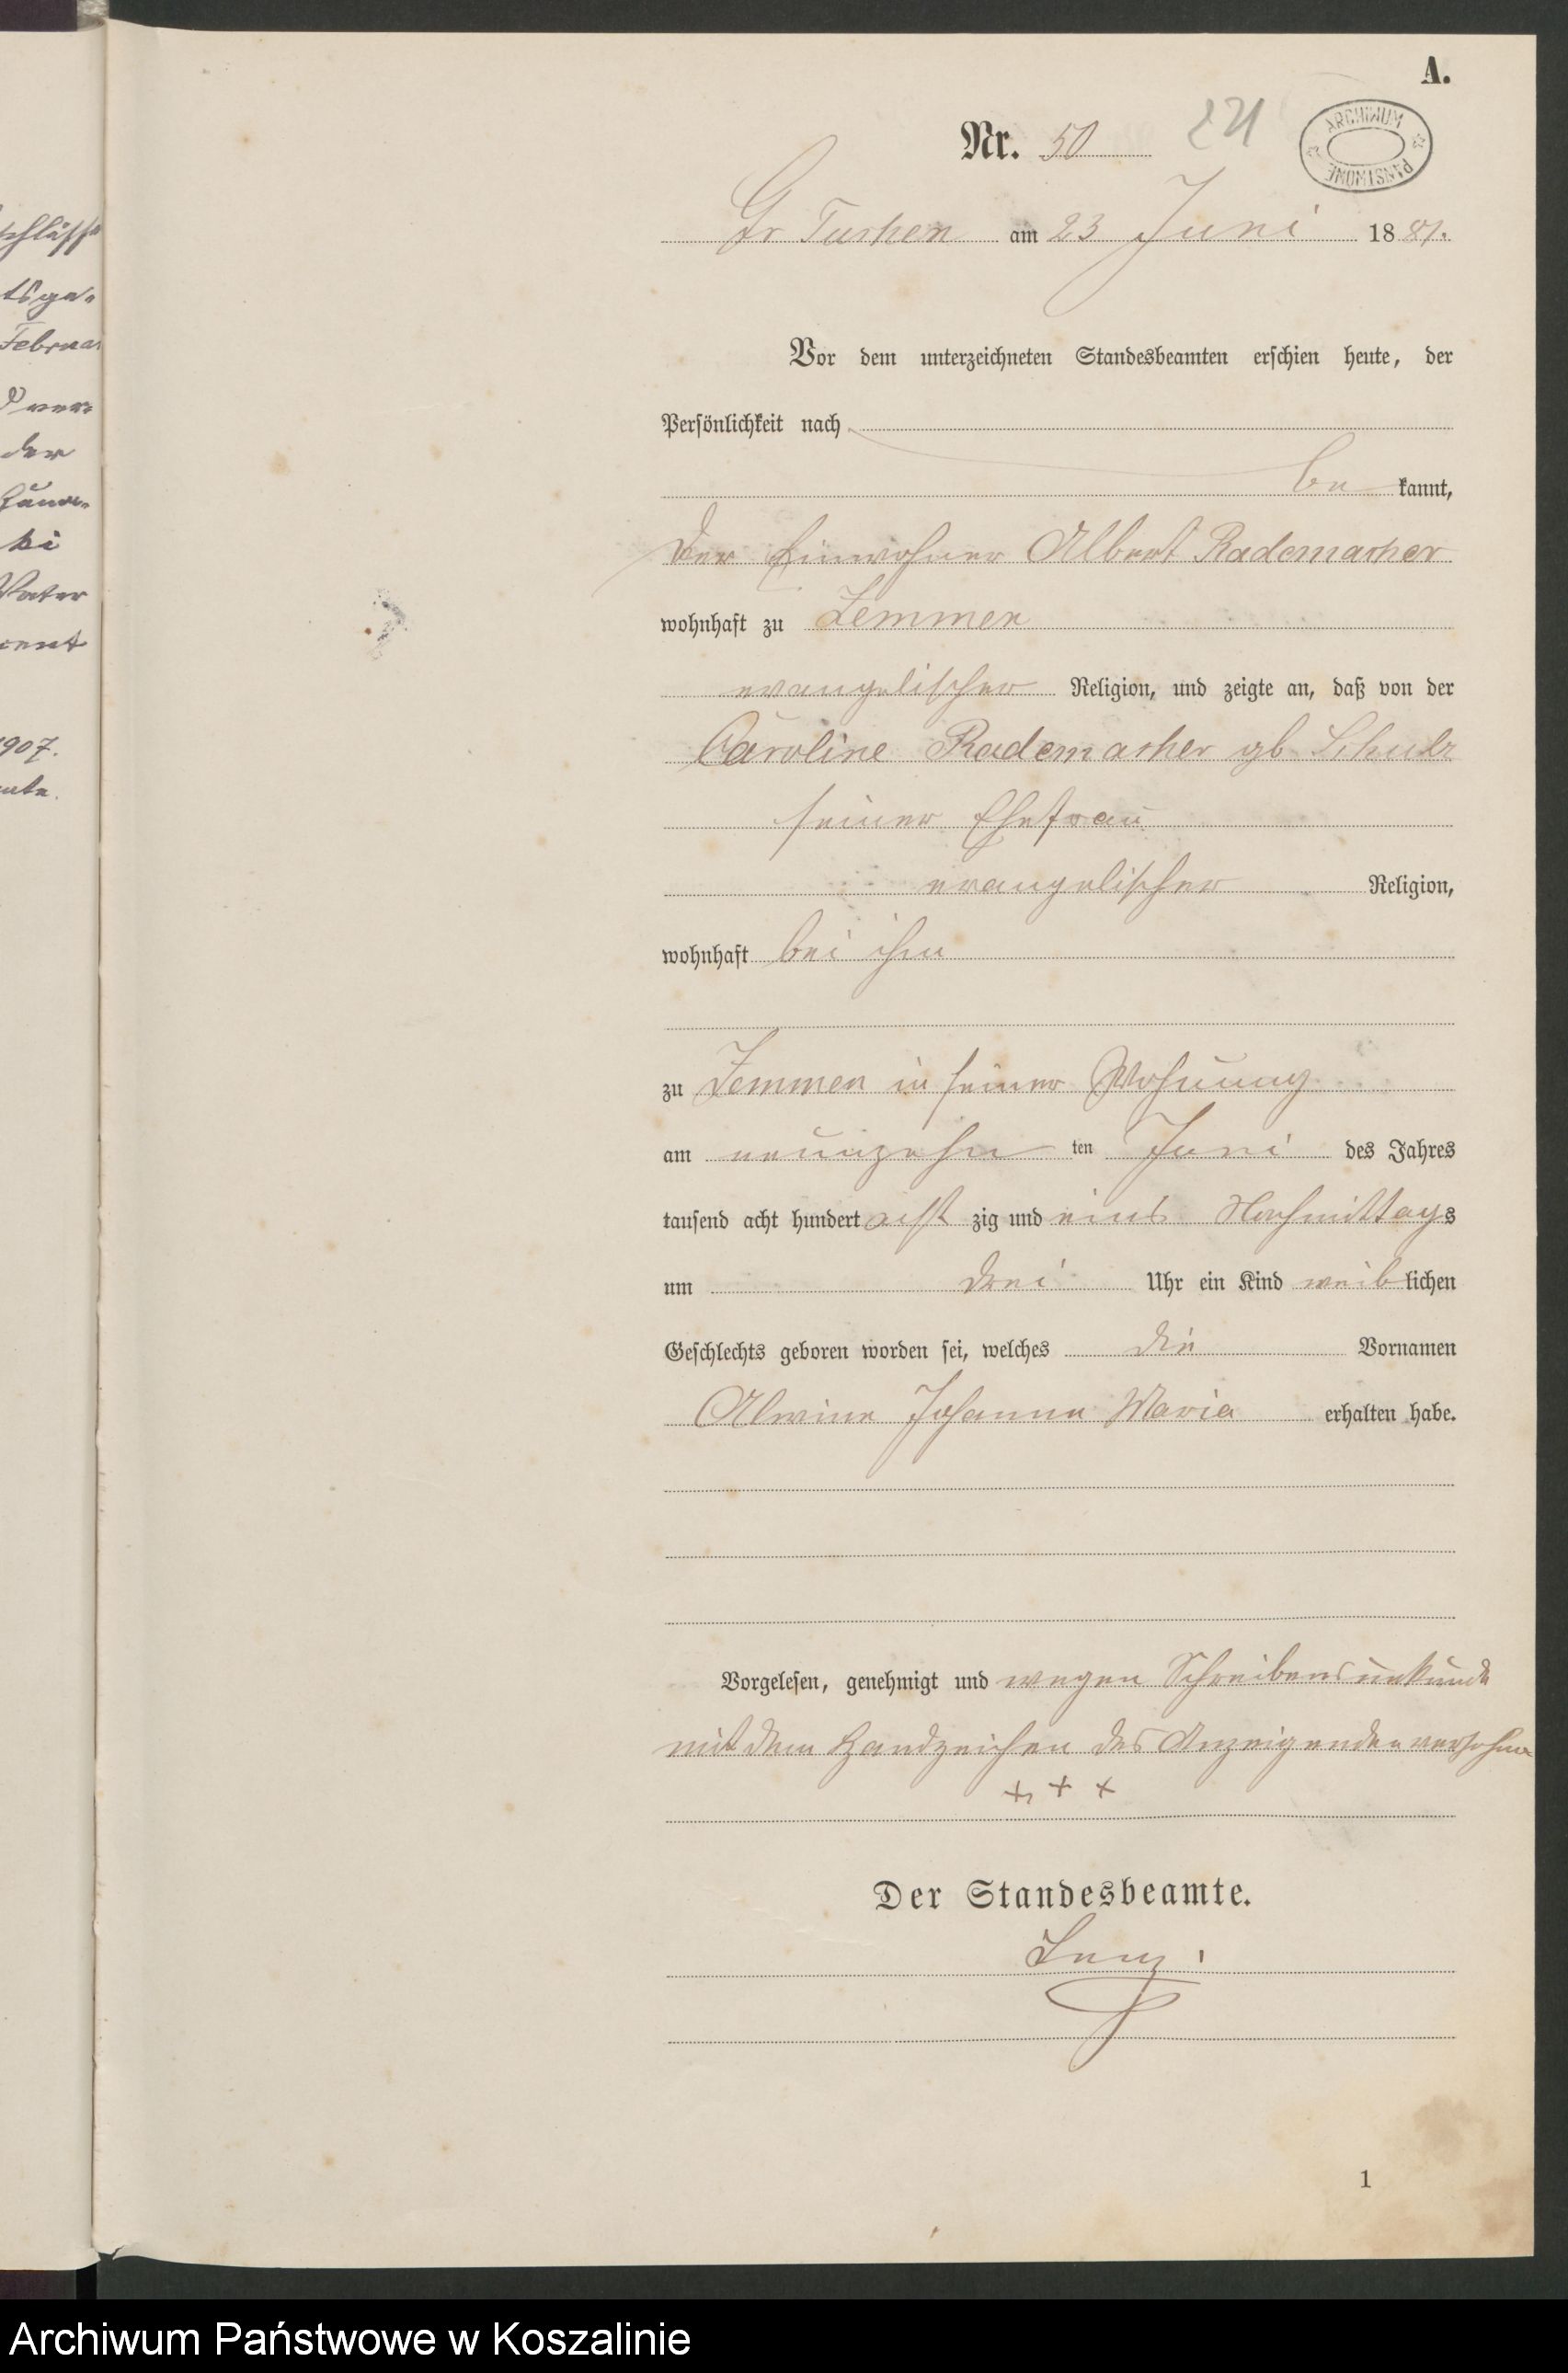 A.
Nr. 50
221
ARCHIWUM PAŃSTWOWE
Gr Tuchen am 23 Juni 1881.
Vor dem unterzeichneten Standesbeamten erschien heute, der
Persönlichkeit nach
be kannt,
der Einwohner Albert Rademacher
wohnhaft zu Zemmen
evangelischer Religion, und zeigte an, daß von der
Caroline Rademacher gb Schulz
seiner Ehefrau
evangelischer Religion,
wohnhaft bei ihm
zu Zemmen in seiner Wohnung
am neunzehn ten Juni des Jahres
tausend acht hundert acht zig und eins Nachmittags
um drei Uhr ein Kind weiblichen
Geschlechts geboren worden sei, welches die Vornamen
Alwine Johanna Maria erhalten habe.
Vorgelesen, genehmigt und wegen Schreibensunkunde
mit dem Handzeichen des Anzeigenden versehen
+ + +
Der Standesbeamte.
1
tsge=
Februar
ver=
der
Vater
1907.
Archiwum Państwowe w Koszalinie